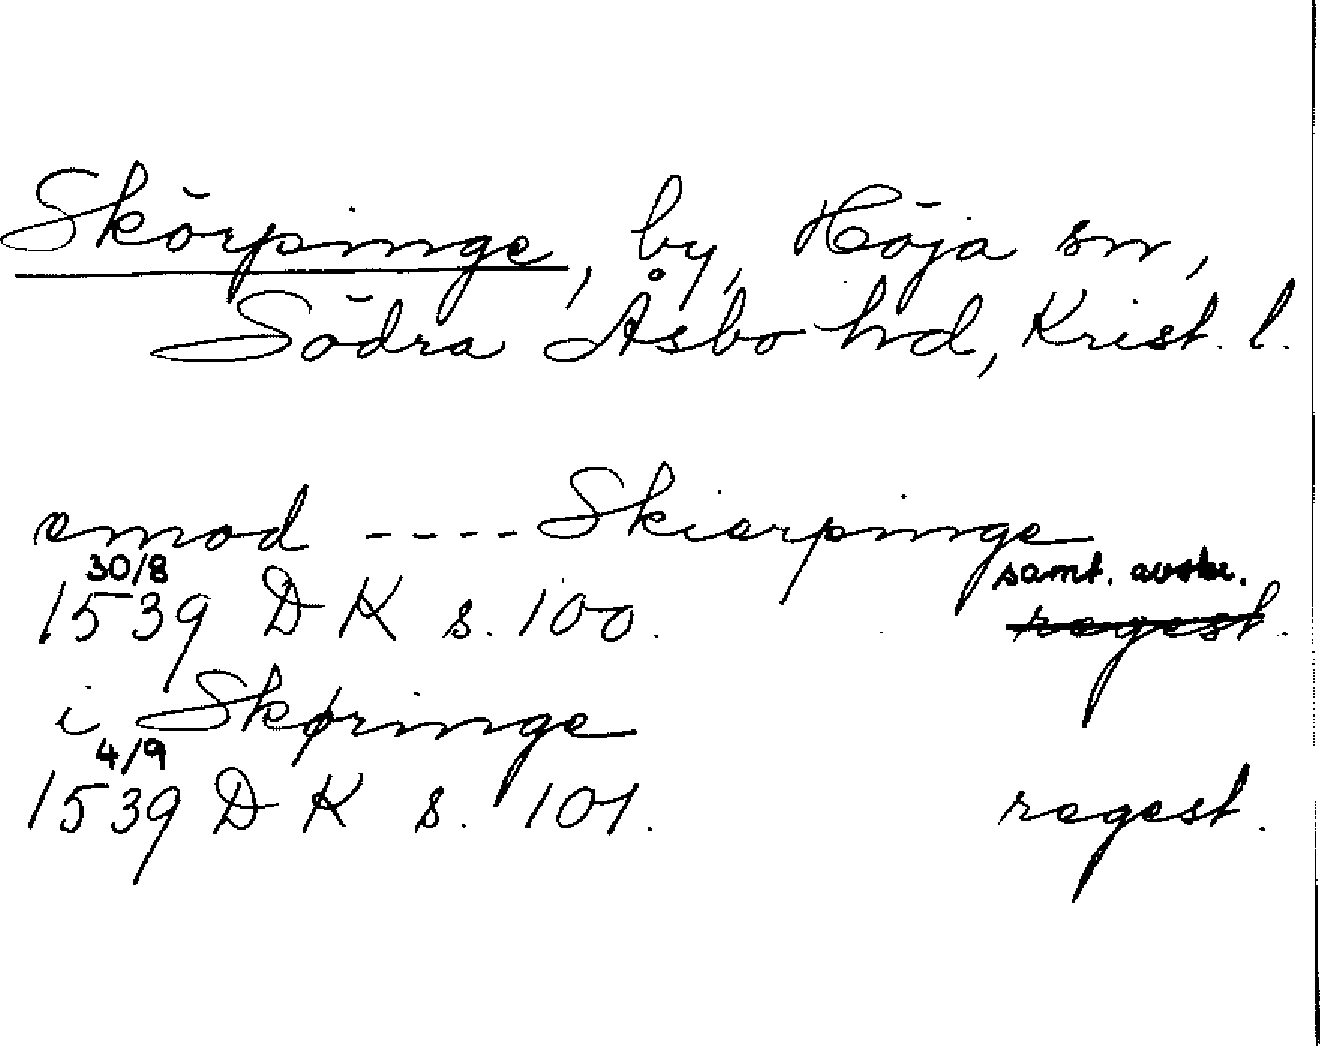 Skörpinge, by, Höja sn,
Södra Åsbo hd, Krist. l.
emod ---- Skierpinge
30/8 samt. avskr.
1539 DK s. 100. regest.
i Skøringe
4/9
1539 DK s. 101. regest.